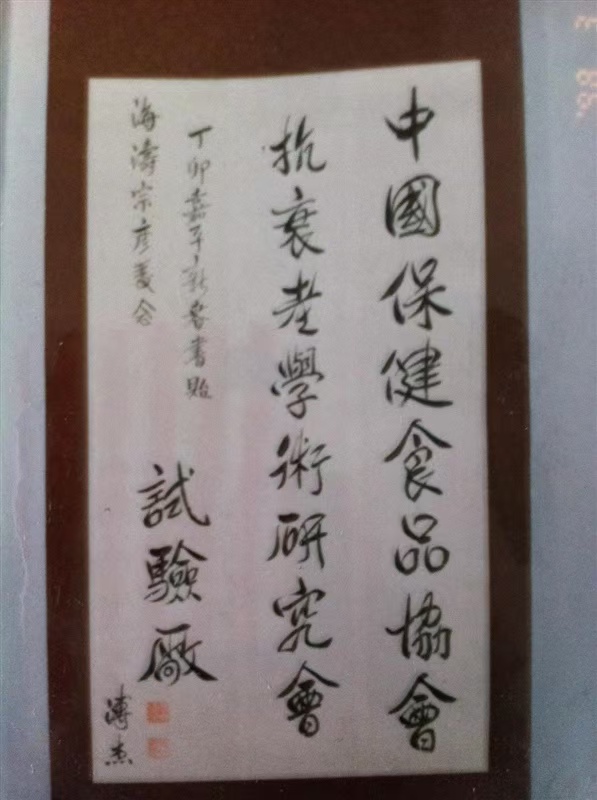 中國保健食品協會
抗衰老學術研究會
試驗廠
丁卯嘉平新春書貽
海濤宗彦養念
溥杰